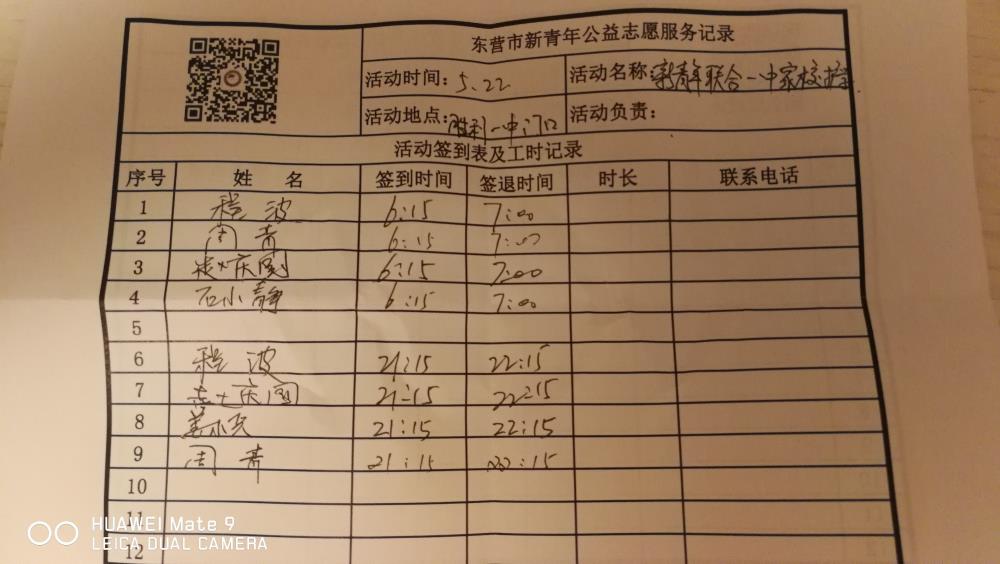 东营市新青年公益志愿服务记录
活动时间: 5.22 活动名称: 新青年联合一中家校护学
活动地点: 胜利一中门口 活动负责:
活动签到表及工时记录
序号 姓名 签到时间 签退时间 时长 联系电话
1 程波 6:15 7:00
2 周青 6:15 7:00
3 庆国 6:15 7:00
4 石小静 6:15 7:00
5
6 程波 21:15 22:15
7 庆国 21:15 22:15
8 21:15 22:15
9 周青 21:15 22:15
10
11
12
HUAWEI Mate 9
LEICA DUAL CAMERA